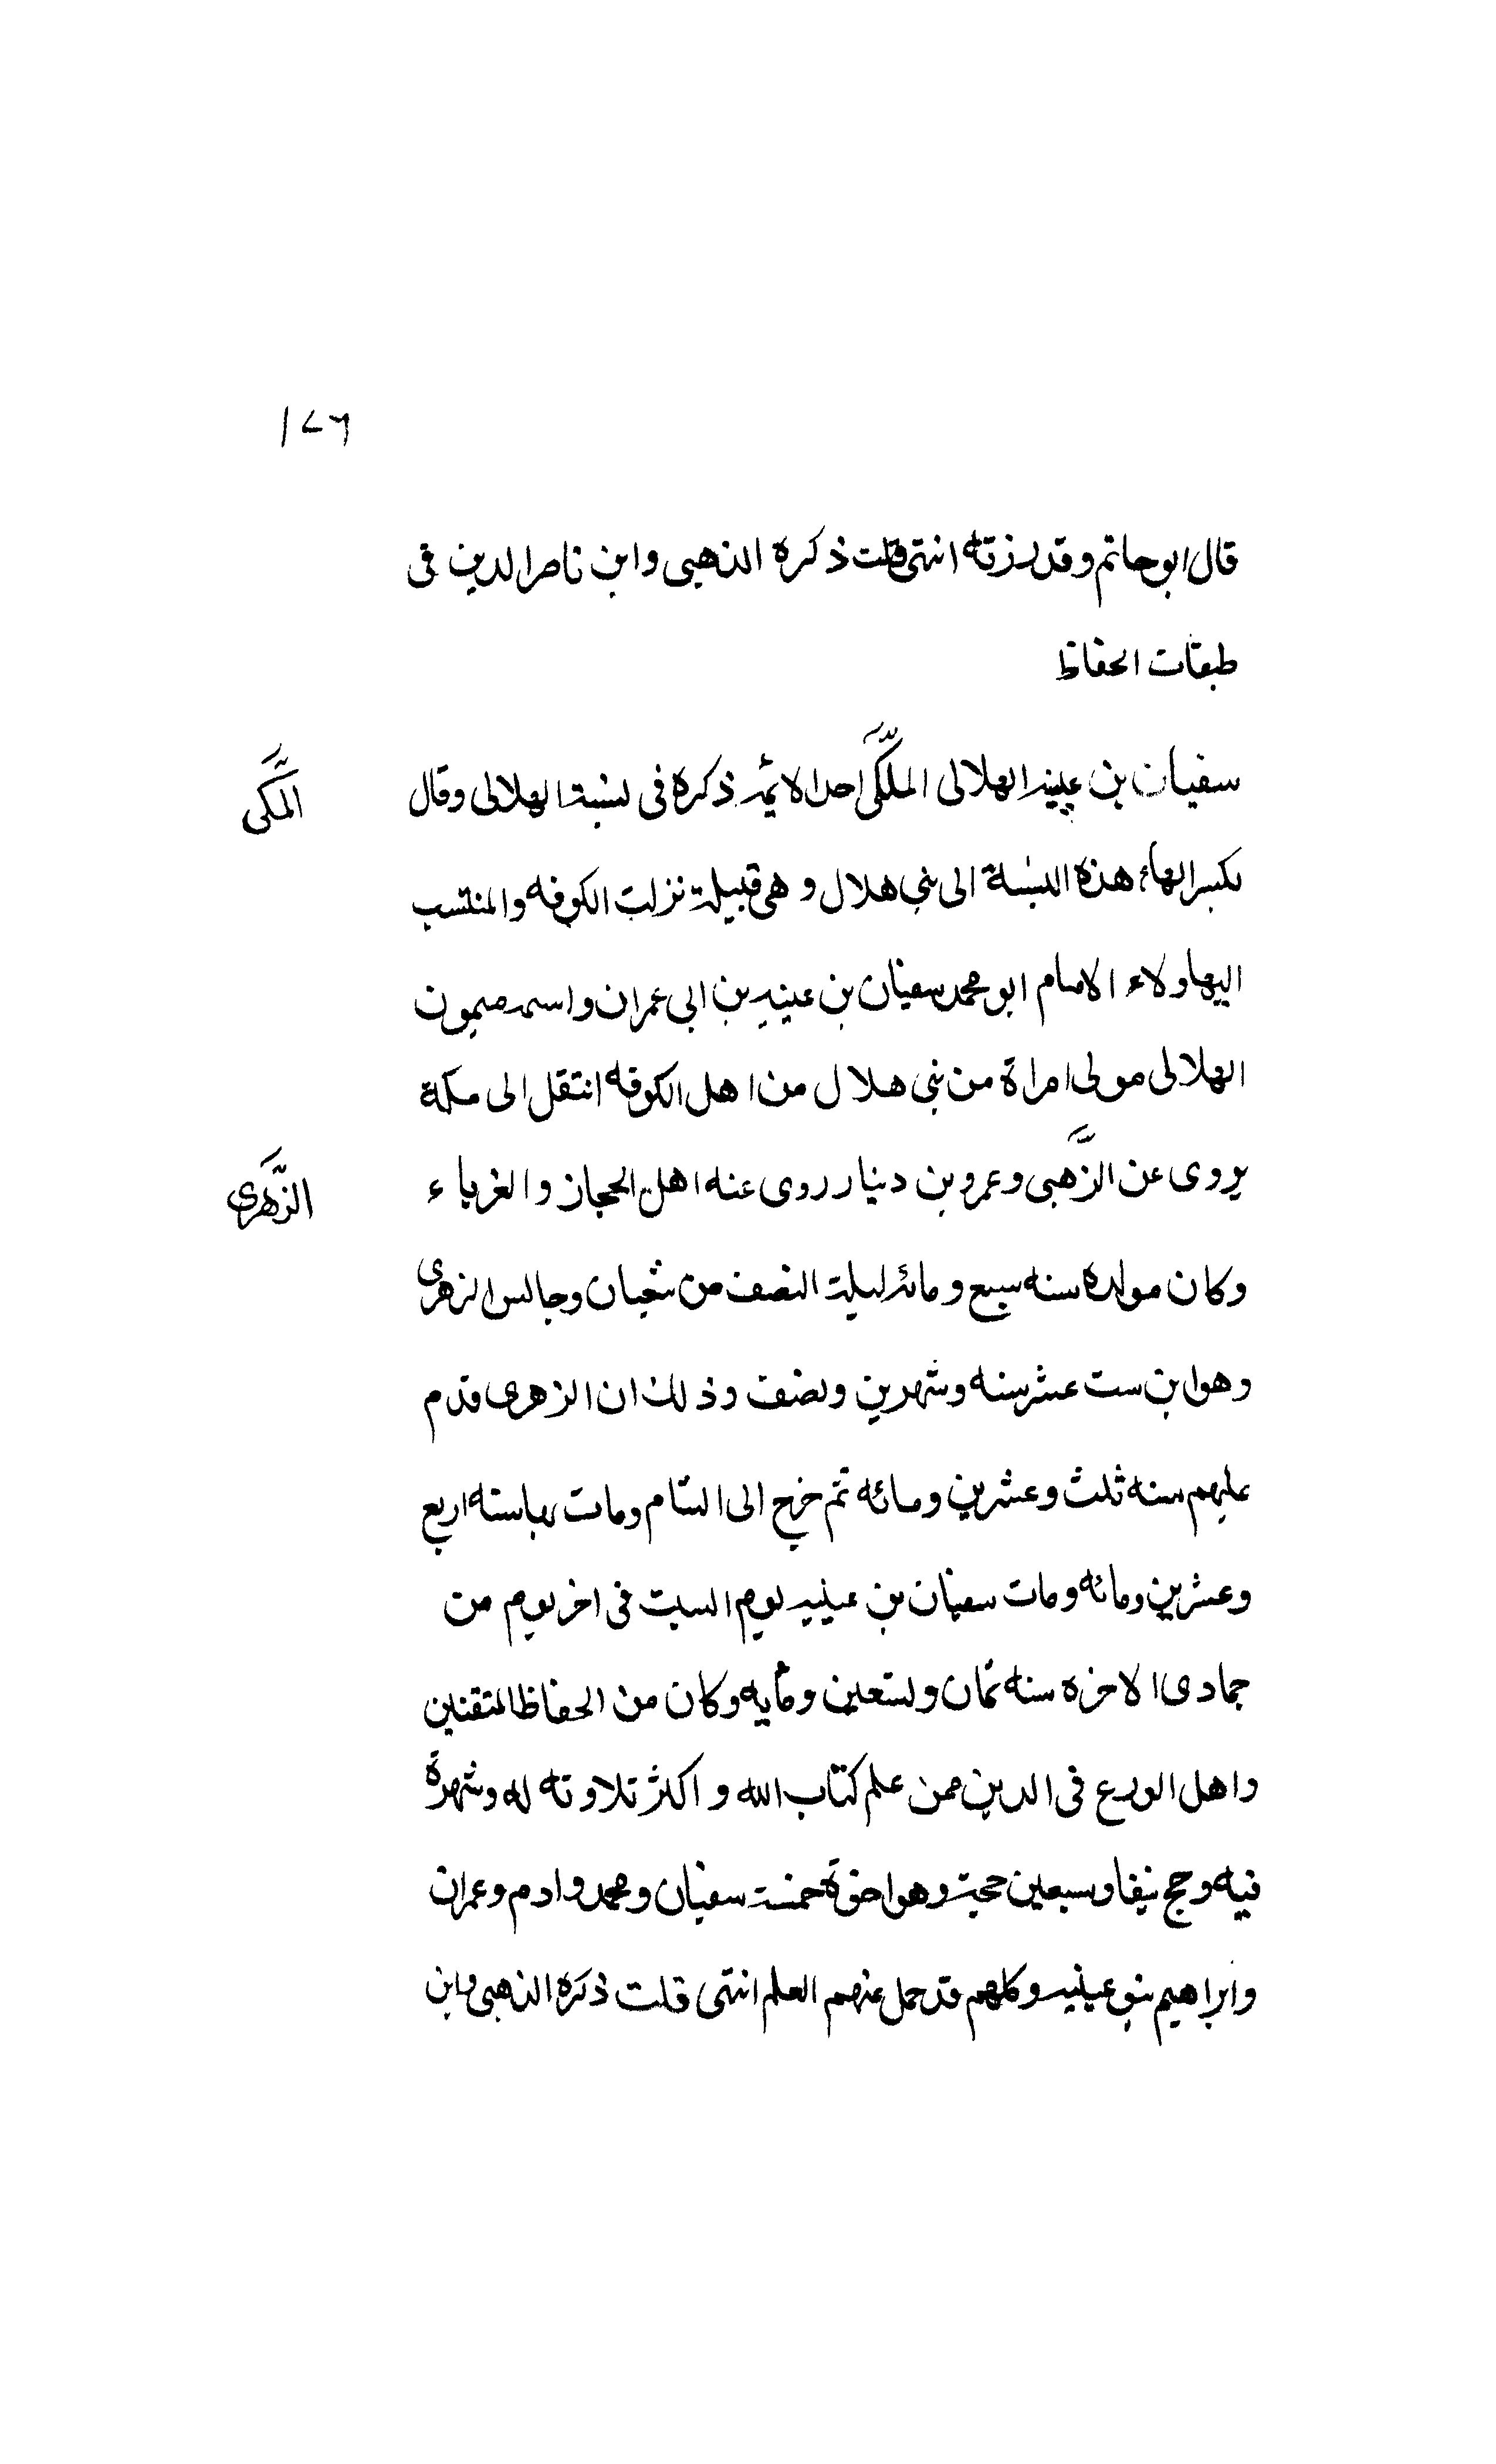 ١٤٦
قال ابو حاتم وقد رزته انتهى قلت ذكره الذهبى وابن ناصر الدين فى
طبقات الحفاظ
سفيان بن عيينه الهلالى الملكّى احد الائمه ذكره فى نسبة الهلالى وقال
المكّى
بكسر الهاء هذه النسبة الى بنى هلال و هى قبيلة نزلت الكوفه والمنتسب
اليها ولاء الامام ابو محمد سفيان بن عيينه بن ابى عمران واسمه ميمون
الهلالى مولى امراة من بنى هلال من اهل الكوفه انتقل الى مكة
يروى عن الزّهبى وعمرو بن دينار روى عنه اهل الحجاز و الغرباء
الزّهرى
وكان مولده سنه سبع و مائه ليلة النصف من شعبان وجالس الزهرى
وهو ابن ست عشر سنه وشهرين ونصف وذلك ان الزهرى قدم
عليهم سنه ثلث وعشرين ومائه ثم خرج الى الشام ومات بها سنه اربع
وعشرين ومائه ومات سفيان بن عيينه يوم السبت فى اخر يوم من
جمادى الاخره سنه ثمان وتسعين ومأيه وكان من الحفاظ المتقنين
واهل الورع فى الدين ممن علم كتاب الله و اكثر تلاوته له وشهرة
فيه وحج نيفا وسبعين حجة وهو اخوة خمسة سفيان ومحمد وادم وعمران
وابراهيم بنو عيينه وكلهم قد حمل عنهم العلم انتهى قلت ذكره الذهبى وابن